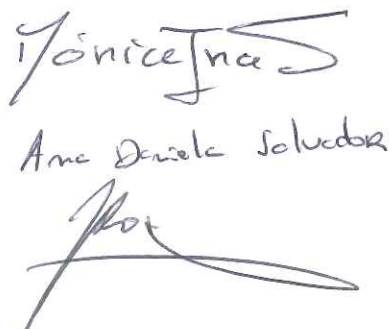 Mónica Ina S
Ana Daniela Salvador